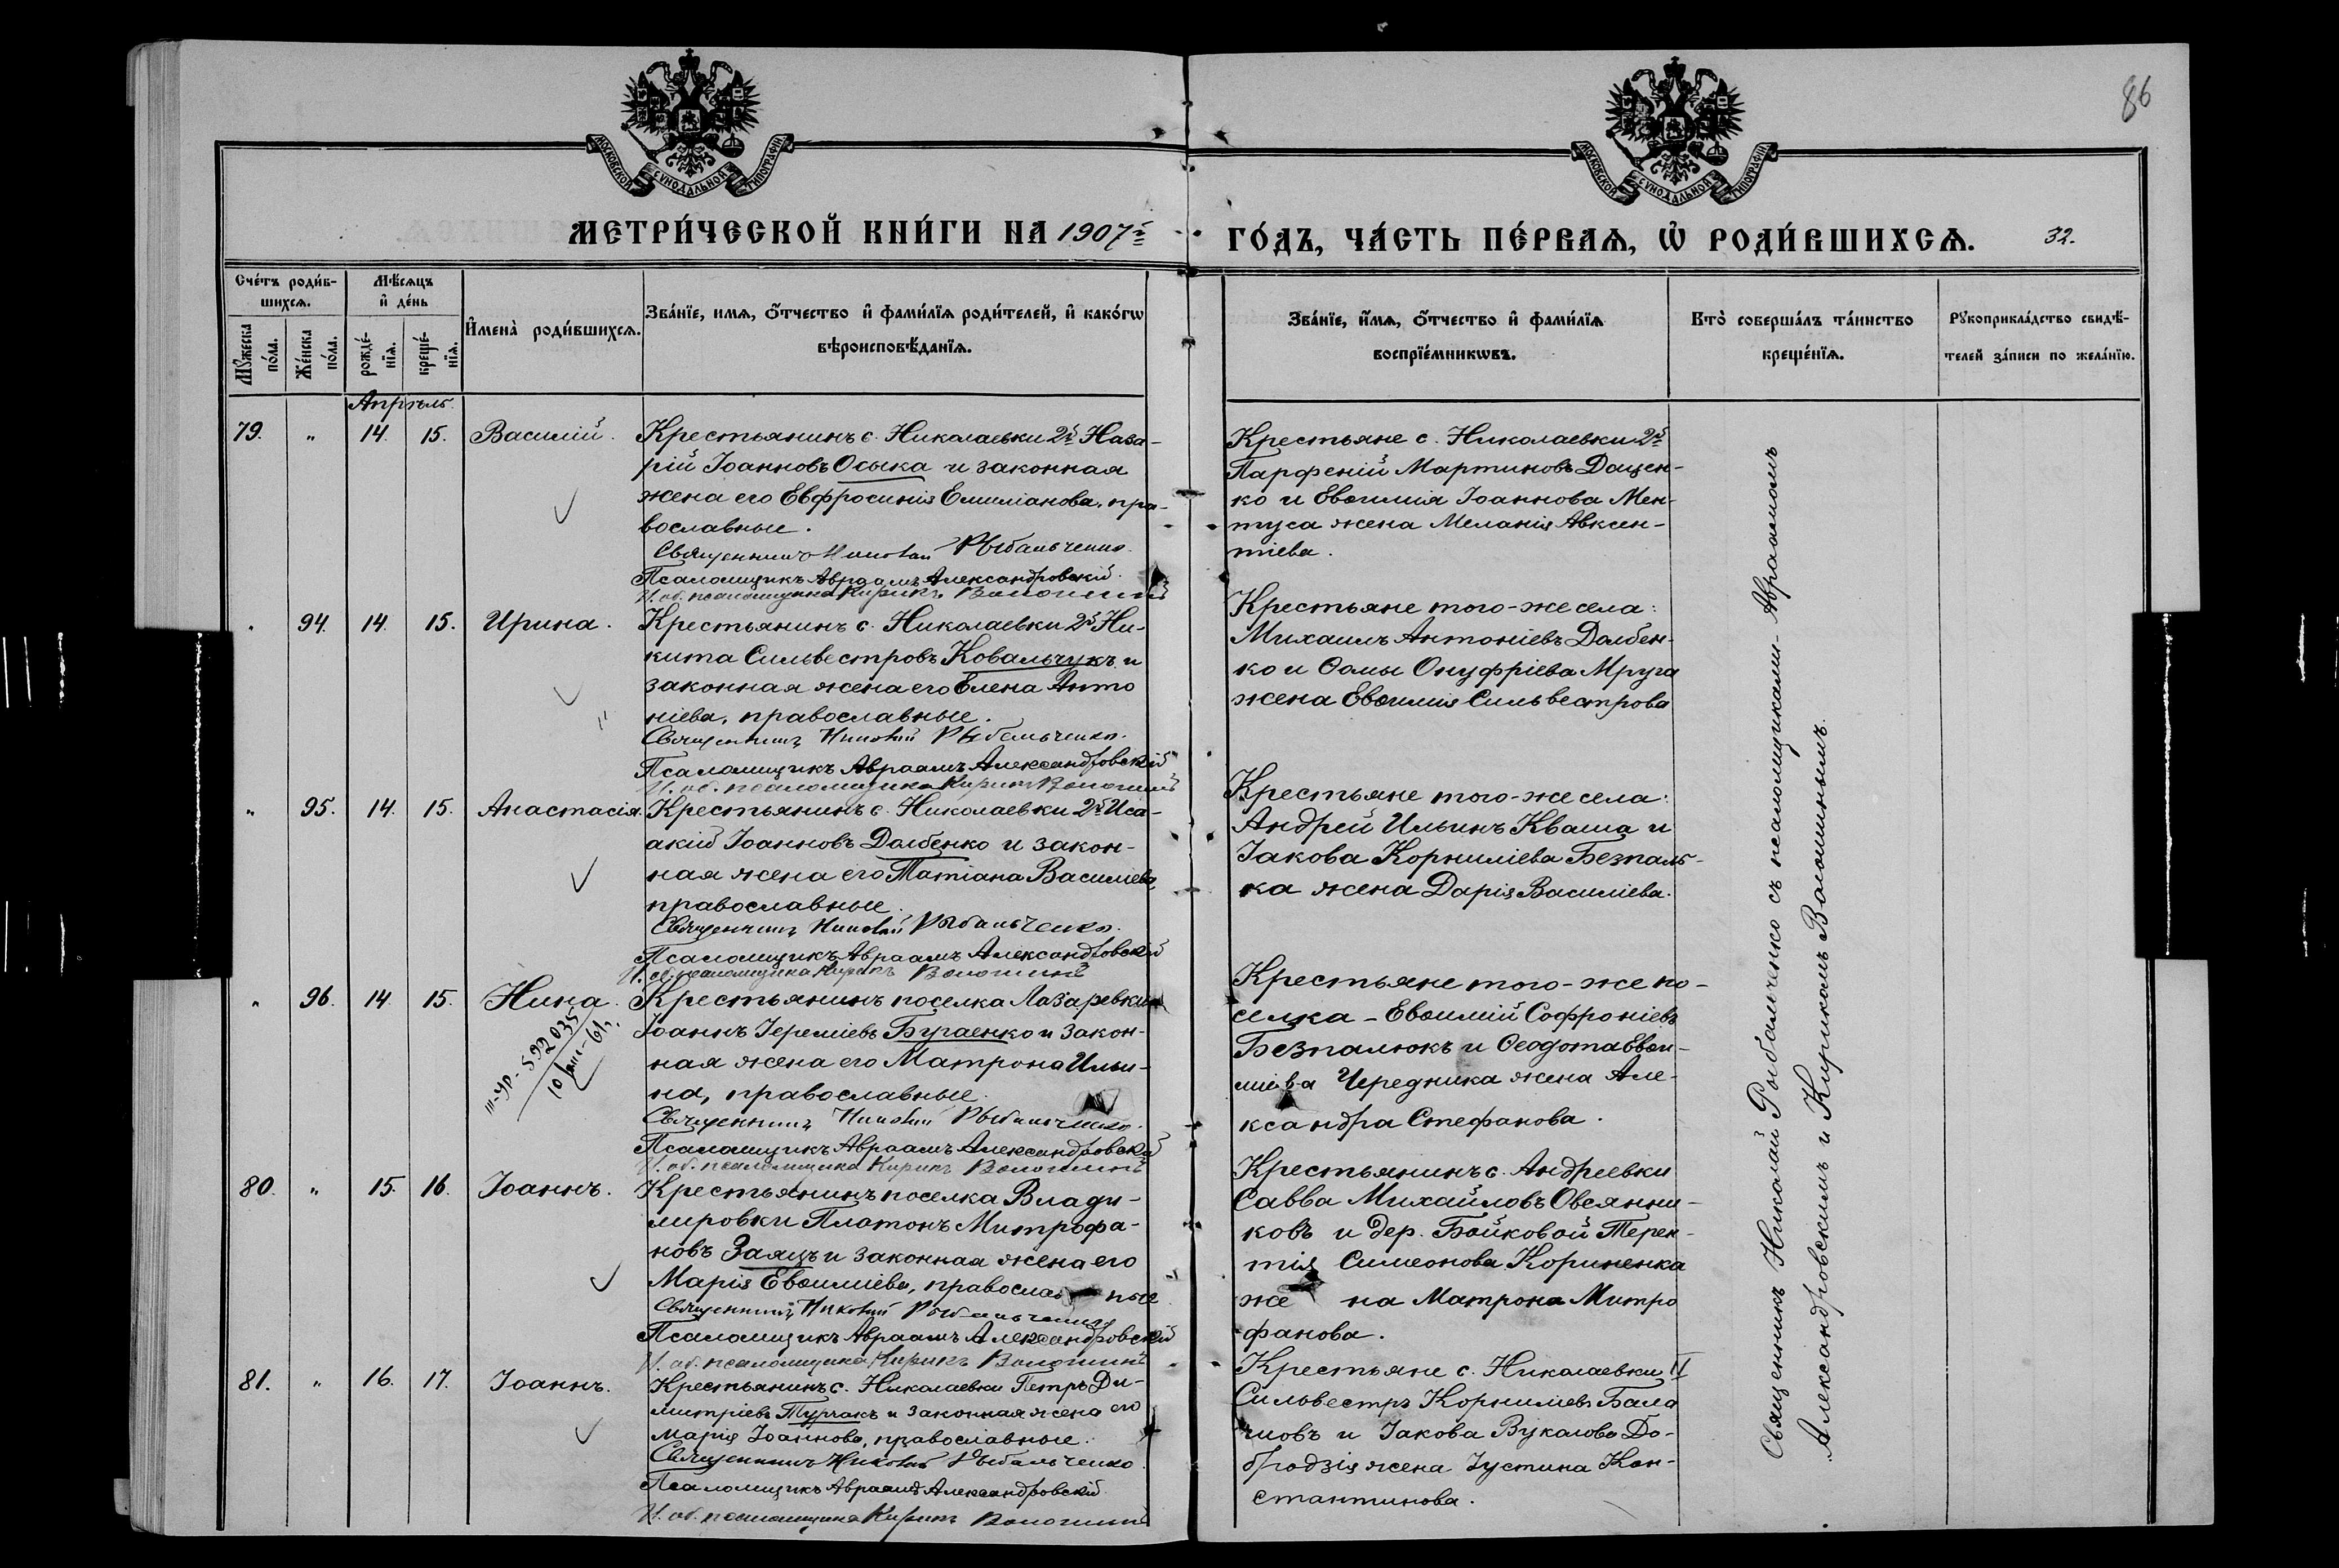 86
МОСКОВСКОЙ СѴНОДАЛЬНОЙ ТИПОГРАФІИ
МОСКОВСКОЙ СѴНОДАЛЬНОЙ ТИПОГРАФІИ
МЕТРИ́ЧЕСКОЙ КНИ́ГИ НА 1907й
ГО́ДЪ, ЧА́СТЬ ПЕ́РВАѦ, Ѡ҆ РОДИ́ВШИХСѦ. 32.
Сче́тъ роди́в-
шихсѧ.
Мѣ́сѧцъ
и҆ де́нь
Мꙋ́жеска по́ла.
Же́нска по́ла.
рожде́-нїѧ.
креще́-нїѧ.
И҆мена̀ роди́вшихсѧ.
Зва́нїе, имѧ, ѻ҆́тчество и҆ фами́лїѧ роди́телей, и҆ како́гѡ
вѣроисповѣ́данїѧ.
Зва́нїе, и҆́мѧ, ѻ҆́тчество и҆ фами́лїѧ
воспрїе́мникѡвъ.
Кто̀ соверша́лъ та́инство
креще́нїѧ.
Рꙋкоприкла́дство свидѣ́-
телей за́писи по жела́нїю.
Апрѣль.
79. " 14. 15. Василій.
Крестьянинъ с. Николаевки 2й Наза-
рій Іоанновъ Осыка и законная
жена его Евфросинія Емиліанова, пра-
вославные.
Священникъ Николай Рыбальченко.
Псаломщикъ Авраамъ Александровскій.
И. об. псаломщика Кирикъ Волошинъ
Крестьяне с. Николаевки 2й
Парфеній Мартиновъ Доцен-
ко и Евѳимія Іоаннова Мен-
туса жена Меланія Авксен-
тіева.
" 94. 14. 15. Ирина.
Крестьянинъ с. Николаевки 2й Ни-
кита Сильвестровъ Ковальчукъ и
законная жена его Елена Анто
ніева, православные.
Священникъ Николай Рыбальченко.
Псаломщикъ Авраамъ Александровскій
И. об. псаломщика Кирикъ Волошинъ
Крестьяне того-же села:
Михаилъ Антоніевъ Долбен-
ко и Ѳомы Онуфріева Мруга
жена Евѳимія Сильвестрова
" 95. 14. 15. Анастасія.
Крестьянинъ с. Николаевки 2й Иса-
акій Іоанновъ Долбенко и закон-
ная жена его Татіана Василіева,
православные.
Священникъ Николай Рыбальченко.
Псаломщикъ Авраамъ Александровскій
И. об. псаломщика Кирикъ Волошинъ
Крестьяне того-же села:
Андрей Ильинъ Кваша и
Іакова Корниліева Безпаль-
ка жена Дарія Василіева.
" 96. 14. 15. Нина.
10 61
Крестьянинъ поселка Лазаревки
Іоаннъ Іереміевъ Бугаенко и закон-
ная жена его Матрона Ильи-
на, православные.
Священникъ Николай Рыбальченко.
Псаломщикъ Авраамъ Александровскій
И. об. псаломщика Кирикъ Волошинъ
Крестьяне того-же по-
селка - Евѳимій Софроніевъ
Безпалюкъ и Ѳеодота Евѳи-
міева Чередника жена Але-
ксандра Стефанова.
80. " 15. 16. Іоаннъ.
Крестьянинъ поселка Влади-
мировки Платонъ Митрофа-
новъ Заяцъ и законная жена его
Марія Евѳиміева, православные
Священникъ Николай Рыбальченко
Псаломщикъ Авраамъ Александровскій
И. об. псаломщика Кирикъ Волошинъ
Крестьянинъ с. Андреевки
Савва Михайловъ Овсянни-
ковъ и дер. Бойковой Терен-
тія Симеонова Кориненка
же на Матрона Митро
фанова.
81. " 16. 17. Іоаннъ.
Крестьянинъ с. Николаевки Петръ Ди-
митріевъ Турчакъ и законная жена его
Марія Іоаннова, православные.
Священникъ Николай Рыбальченко.
Псаломщикъ Авраамъ Александровскій.
И. об. псаломщика Кирикъ Волошинъ
Крестьяне с. Николаевки II
Сильвестръ Корниліевъ
и Іакова До-
бродзія жена Іустина Кон-
стантинова.
Священникъ Николай Рыбальченко съ псаломщиками - Авраамомъ
Александровскимъ и Кирикомъ Волошинымъ.